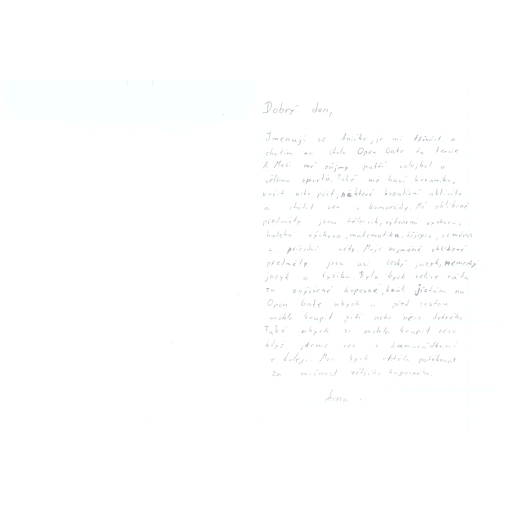 Dobrý den,
Jmenuji se Anička, je mi třináct a
chodím na školu Open Gate do tercie
A. Mezi mé zájmy patří volejbal a
většina sportů. Také mě baví keramika,
vařit nebo péct, některé kreativní aktivity
a chodit ven s kamarády. Mé oblíbené
předměty jsou tělocvik, výtvarná výchova,
hudební výchova, matematika, dějepis, zeměpis
a přírodní vědy. Moje nejméně oblíbené
předměty jsou asi český jazyk, německý
jazyk a fyzika. Byla bych velice ráda
za zvýšené kapesné, když jezdím na
Open Gate abych si před cestou
mohla koupit pití nebo něco dobrého.
Také abych si mohla koupit něco
když jdeme ven s kamarádkami
z koleje. Moc bych chtěla poděkovat
za možnost většího kapesného.
Anna